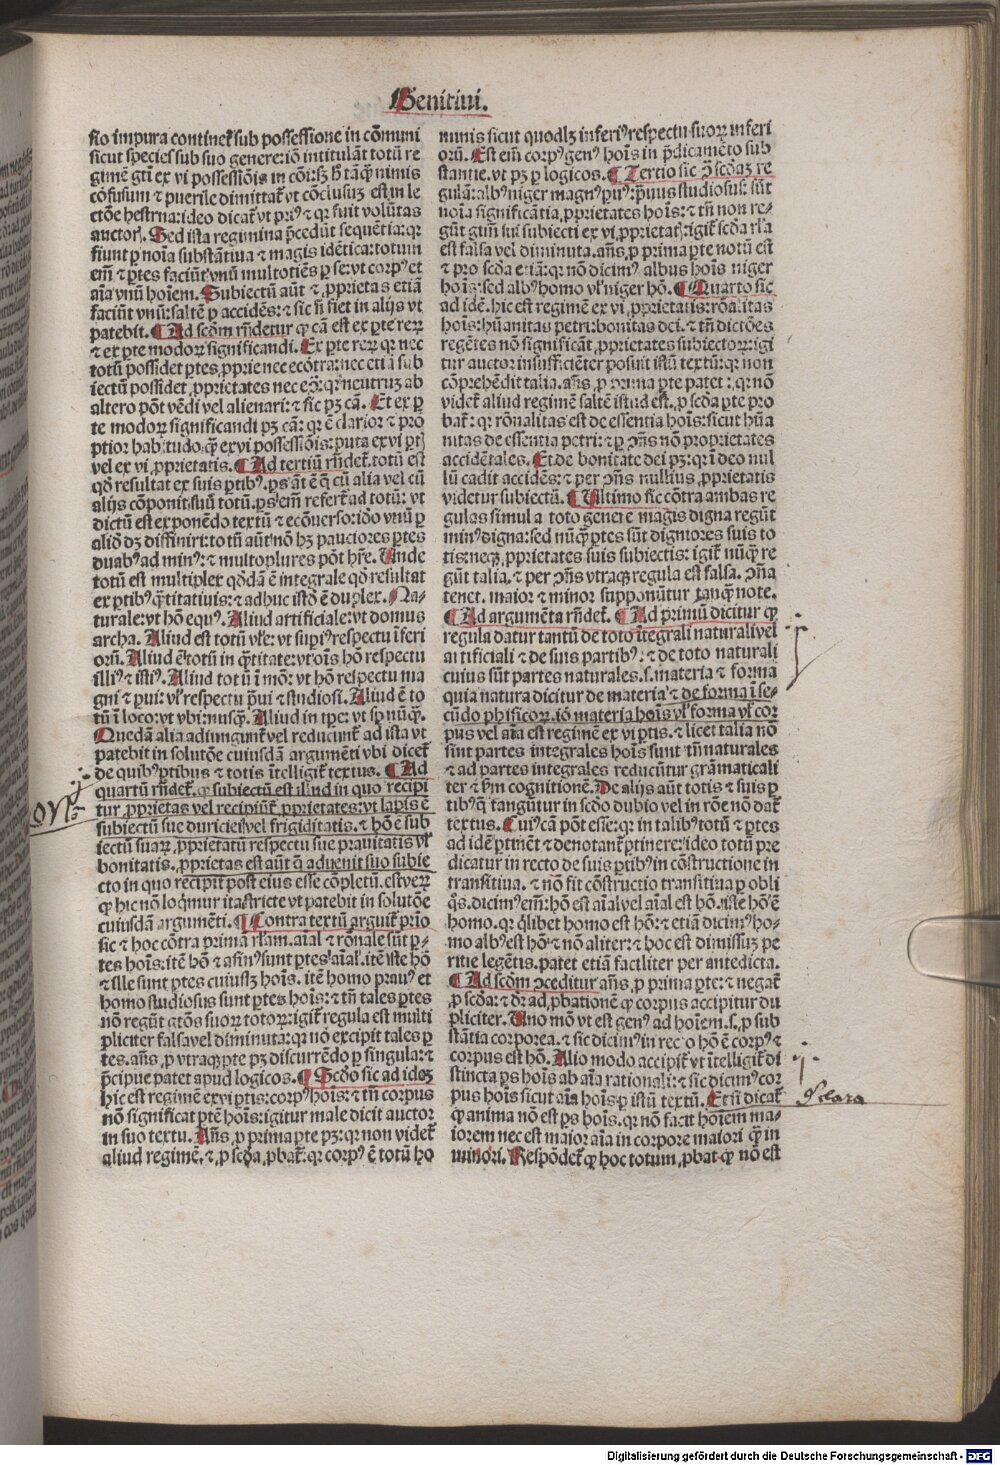 Genitiui.
sio impura continet̃ sub possessione in cõmuni
sicut species sub suo genere: iõ intitulãt totũ re
gimẽ gtĩ ex vi possessiõis in cõi: sꝫ hͦ tãqͣꝫ nimis
cõfusum ⁊ puerile dimittat̃ vt cõclusuꝫ est in le
ctõe hesterna: ideo dicat̃ vt priꝰ ⁊ qꝛ fuit volũtas
auctorꝭ. Sed ista regimina p̃cedũt sequẽtia: qꝛ
fiunt ꝑ noĩa substãtiua ⁊ magis idẽtica: totum
em̃ ⁊ ꝑtes faciũt vnũ multotiẽs ꝑ se: vt corpꝰ et
aĩa vnũ hoĩem. Subiectũ aũt ⁊ ꝓprietas etiã
faciũt vnũ: saltẽ ꝑ accidẽs: ⁊ sic ñ fiet in alijs vt
patebit. ¶ Ad scõm rñdetur ꝙ cã est ex ꝑte reꝝ
⁊ ex ꝑte modoꝝ significandi. Ex ꝑte reꝝ qꝛ nec
totũ possidet ꝑtes ꝓprie nec ecõtra: nec etiã sub
iectũ possidet ꝓprietates nec eͨ: qꝛ neutruꝫ ab
altero põt vẽdi vel alienari: ⁊ sic pꝫ cã. Et ex ꝑ
te modoꝝ significandi pꝫ cã: qꝛ ẽ clarior ⁊ pro
ptior habitudo qͣꝫ ex vi possessiõis: puta ex vi ꝑtꝭ
vel ex vi ꝓprietatis. ¶ Ad tertiũ rñdet̃. totũ est
qd̃ resultat ex suis ꝑtibꝰ. ꝑs aũt ẽ q̃ cũ alia vel cũ
alijs cõponit suũ totũ. ꝑs em̃ refert̃ ad totũ: vt
dictũ est exponẽdo textũ ⁊ ecõuerso: iõo vnũ ꝑ
aliõ dꝫ diffiniri: totũ aũt nõ hꝫ pauciores ꝑtes
duabꝰ ad minꝰ: ⁊ multo plures põt hr̃e. Unde
totũ est multiplex qd̃dã ẽ integrale qd̃ resultat
ex ꝑtibꝰ qͣ̃titatiuis: ⁊ adhuc istd̃ ẽ duplex. Na-
turale: vt hõ equꝰ. Aliud artificiale: vt domus
archa. Aliud est totũ vl̃e: vt supiꝰ respectu ĩferi
oꝝ. Aliud ẽ totũ in qͣ̃titate: vt oĩs hõ respectu
illiꝰ ⁊ istiꝰ. Aliud totũ ĩ mõ: vt hõ respectu ma
gni ⁊ pui: vl̃ respectu p̃ui ⁊ studiosi. Aliud ẽ to
tũ ĩ loco: vt vbi: nusqͣꝫ. Aliud in tꝑe: vt sp̃ nũqͣꝫ.
Quedã alia adiungunt̃ vel reducunt̃ ad ista vt
patebit in solutõe cuiusdã argumẽti vbi dicet̃
de quibꝰ ꝑtibus ⁊ totis ĩtelligit̃ textus. ¶ Ad
quartũ rñdet̃. ꝙ subiectũ est illud in quo recipi
tur ꝓprietas vel recipiũt̃ ꝓprietates: vt lapis ẽ
subiectũ sue duriciei vel frigiditatis. ⁊ hõ ẽ sub
iectũ suaꝝ ꝓprietatũ respectu sue prauitatis vl̃
bonitatis. ꝓprietas est aũt q̃ aduenit suo subie
cto in quo recipit̃ post eius esse cõpletũ. est veꝝ
ꝙ hic nõ loqͥmur ita stricte vt patebit in solutõe
cuiusdã argumẽti. ¶ Contra textũ arguit̃ prĩo
sic ⁊ hoc cõtra primã rl̃am. aĩal ⁊ rõnale sũt ꝑ-
tes hoĩs: itẽ hõ ⁊ asinꝰ sunt ꝑtes aĩal. itẽ iste hõ
⁊ ille sunt ꝑtes cuiusꝫ hoĩs. itẽ homo prauꝰ et
homo studiosus sunt ꝑtes hoĩs: ⁊ tñ tales ꝑtes
nõ regũt gtõs suoꝝ totoꝝ: igit̃ regula est multi
pliciter falsa vel diminuta: qꝛ nõ excipit tales ꝑ
tes. añs ꝓ vtraqꝫ ꝑte pꝫ discurrẽdo ꝑ singula: ⁊
p̃cipue patet apud logicos. ¶ Scd̃o sic ad ideꝫ
hic est regimẽ ex vi ꝑtis: corpꝰ hoĩs: ⁊ tñ corpus
nõ significat ꝑtẽ hoĩs: igitur male dicit auctor
in suo textu. Añs ꝓ prima ꝑte pꝫ: qꝛ non videt̃
aliud regimẽ. ⁊ ꝓ scd̃a ꝓbat̃: qꝛ corpꝰ ẽ totũ ho
minis sicut quodlꝫ inferiꝰ respectu suoꝝ inferi
oꝝ. Est em̃ corpꝰ genꝰ hoĩs in p̃dicamẽto sub
stantie. vt pꝫ ꝑ logicos. ¶ Tertio sic ↄ̃ scd̃aꝫ re
gulã: albꝰ niger magnꝰ puꝰ: p̃uus studiosus: sũt
noĩa significãtia ꝓprietates hoĩs: ⁊ tñ non re-
gũt gtm̃ sui subiecti ex vi ꝓprietatꝭ: igit̃ scd̃a rl̃a
est falsa vel diminuta. añs ꝓ prima ꝑte notũ est
⁊ pro scd̃a etiã: qꝛ nõ dicimꝰ albus hoĩs niger
hoĩs: sed albꝰ homo vl̃ niger hõ. ¶ Quarto sic
ad idẽ. hic est regimẽ ex vi ꝓprietatis: rõalitas
hoĩs: hũanitas petri: bonitas dei. ⁊ tñ dictões
regẽtes nõ significãt ꝓprietates subiectoꝝ: igi
tur auctor insufficiẽter posuit istũ textũ: qꝛ non
cõprehẽdit talia. añs ꝓ prima ꝑte patet: qꝛ nõ
videt̃ aliud regimẽ saltẽ istud est. ꝓ scd̃a ꝑte pro
bat̃: qꝛ rõnalitas est de essentia hoĩs: sicut hũa
nitas de essentia petri: ⁊ ꝑ ↄñs nõ proprietates
accidẽtales. Et de bonitate dei pꝫ: qꝛ ĩ deo nul
lũ cadit accidẽs: ⁊ per ↄñs nullius ꝓprietatis
videtur subiectũ. ¶ Ultimo sic cõtra ambas re
gulas simul a toto genere magis digna regũt
minꝰ digna: sed nũqͣꝫ ꝑtes sũt digniores suis to
tis: neqꝫ ꝓprietates suis subiectis: igit̃ nũqͣꝫ re
gũt talia. ⁊ per ↄñs vtraqꝫ regula est falsa. ↄña
tenet. maior ⁊ minor supponũtur tanqͣꝫ note.
¶ Ad argumẽta rñdet̃. ¶ Ad primũ dicitur ꝙ
regula datur tantũ de toto ĩtegrali naturali vel
artificiali ⁊ de suis partibꝰ: ⁊ de toto naturali
cuius sũt partes naturales. s. materia ⁊ forma
quia natura dicitur de materia ⁊ de forma ĩ se-
cũdo phisicoꝝ. iõ materia hoĩs vl̃ forma vl̃ cor
pus vel aĩa est regimẽ ex vi ꝑtis. ⁊ licet talia nõ
sint partes integrales hoĩs sunt tñ naturales
⁊ ad partes integrales reducũtur grãmaticali
ter ⁊ ẜm cognitionẽ. De alijs aũt totis ⁊ suis ꝑ
tibꝰ q̃ tangũtur in scd̃o dubio vel in rõe nõ dat̃
textus. Cuiꝰ cã põt esse: qꝛ in talibꝰ totũ ⁊ ꝑtes
ad idẽ ꝑtinẽt ⁊ denotant̃ ꝑtinere: ideo totũ pre
dicatur in recto de suis ꝑtibꝰ in cõstructione in
transitiua. ⁊ nõ fit cõstructio transitiua ꝑ obli
qͦs. dicimꝰ em̃: hõ est aĩal vel aĩal est hõ. iste hõ ẽ
homo. qꝛ qͥlibet homo est hõ: ⁊ etiã dicimꝰ ho-
mo albꝰ est hõ ⁊ nõ aliter: ⁊ hoc est dimissuꝫ pe
ritie legẽtis. patet etiã faciliter per antedicta.
¶ Ad scõm ↄceditur añs ꝓ prima ꝑte: ⁊ negat̃
ꝓ scd̃a: ⁊ dr̃ ad ꝓbationẽ ꝙ corpus accipitur du
pliciter. Uno mõ vt est genꝰ ad hoĩem. s. ꝓ sub
stãtia corporea. ⁊ sic dicimꝰ in recto hõ ẽ corpꝰ ⁊
corpus est hõ. Alio modo accipit̃ vt ĩtelligit̃ di
stincta ꝑs hoĩs ab aĩa rationali: ⁊ sic dicimꝰ cor
pus hoĩs sicut aĩa hoĩs ꝑ istũ textũ. Et si dicat̃
ꝙ anima nõ est ꝑs hoĩs. qꝛ nõ facit hoĩem ma-
iorem nec est maior aĩa in corpore maiori qͣꝫ in
minori. Respõdet̃ ꝙ hoc totum ꝓbat ꝙ nõ est
Digitalisierung gefördert durch die Deutsche Forschungsgemeinschaft - DFG